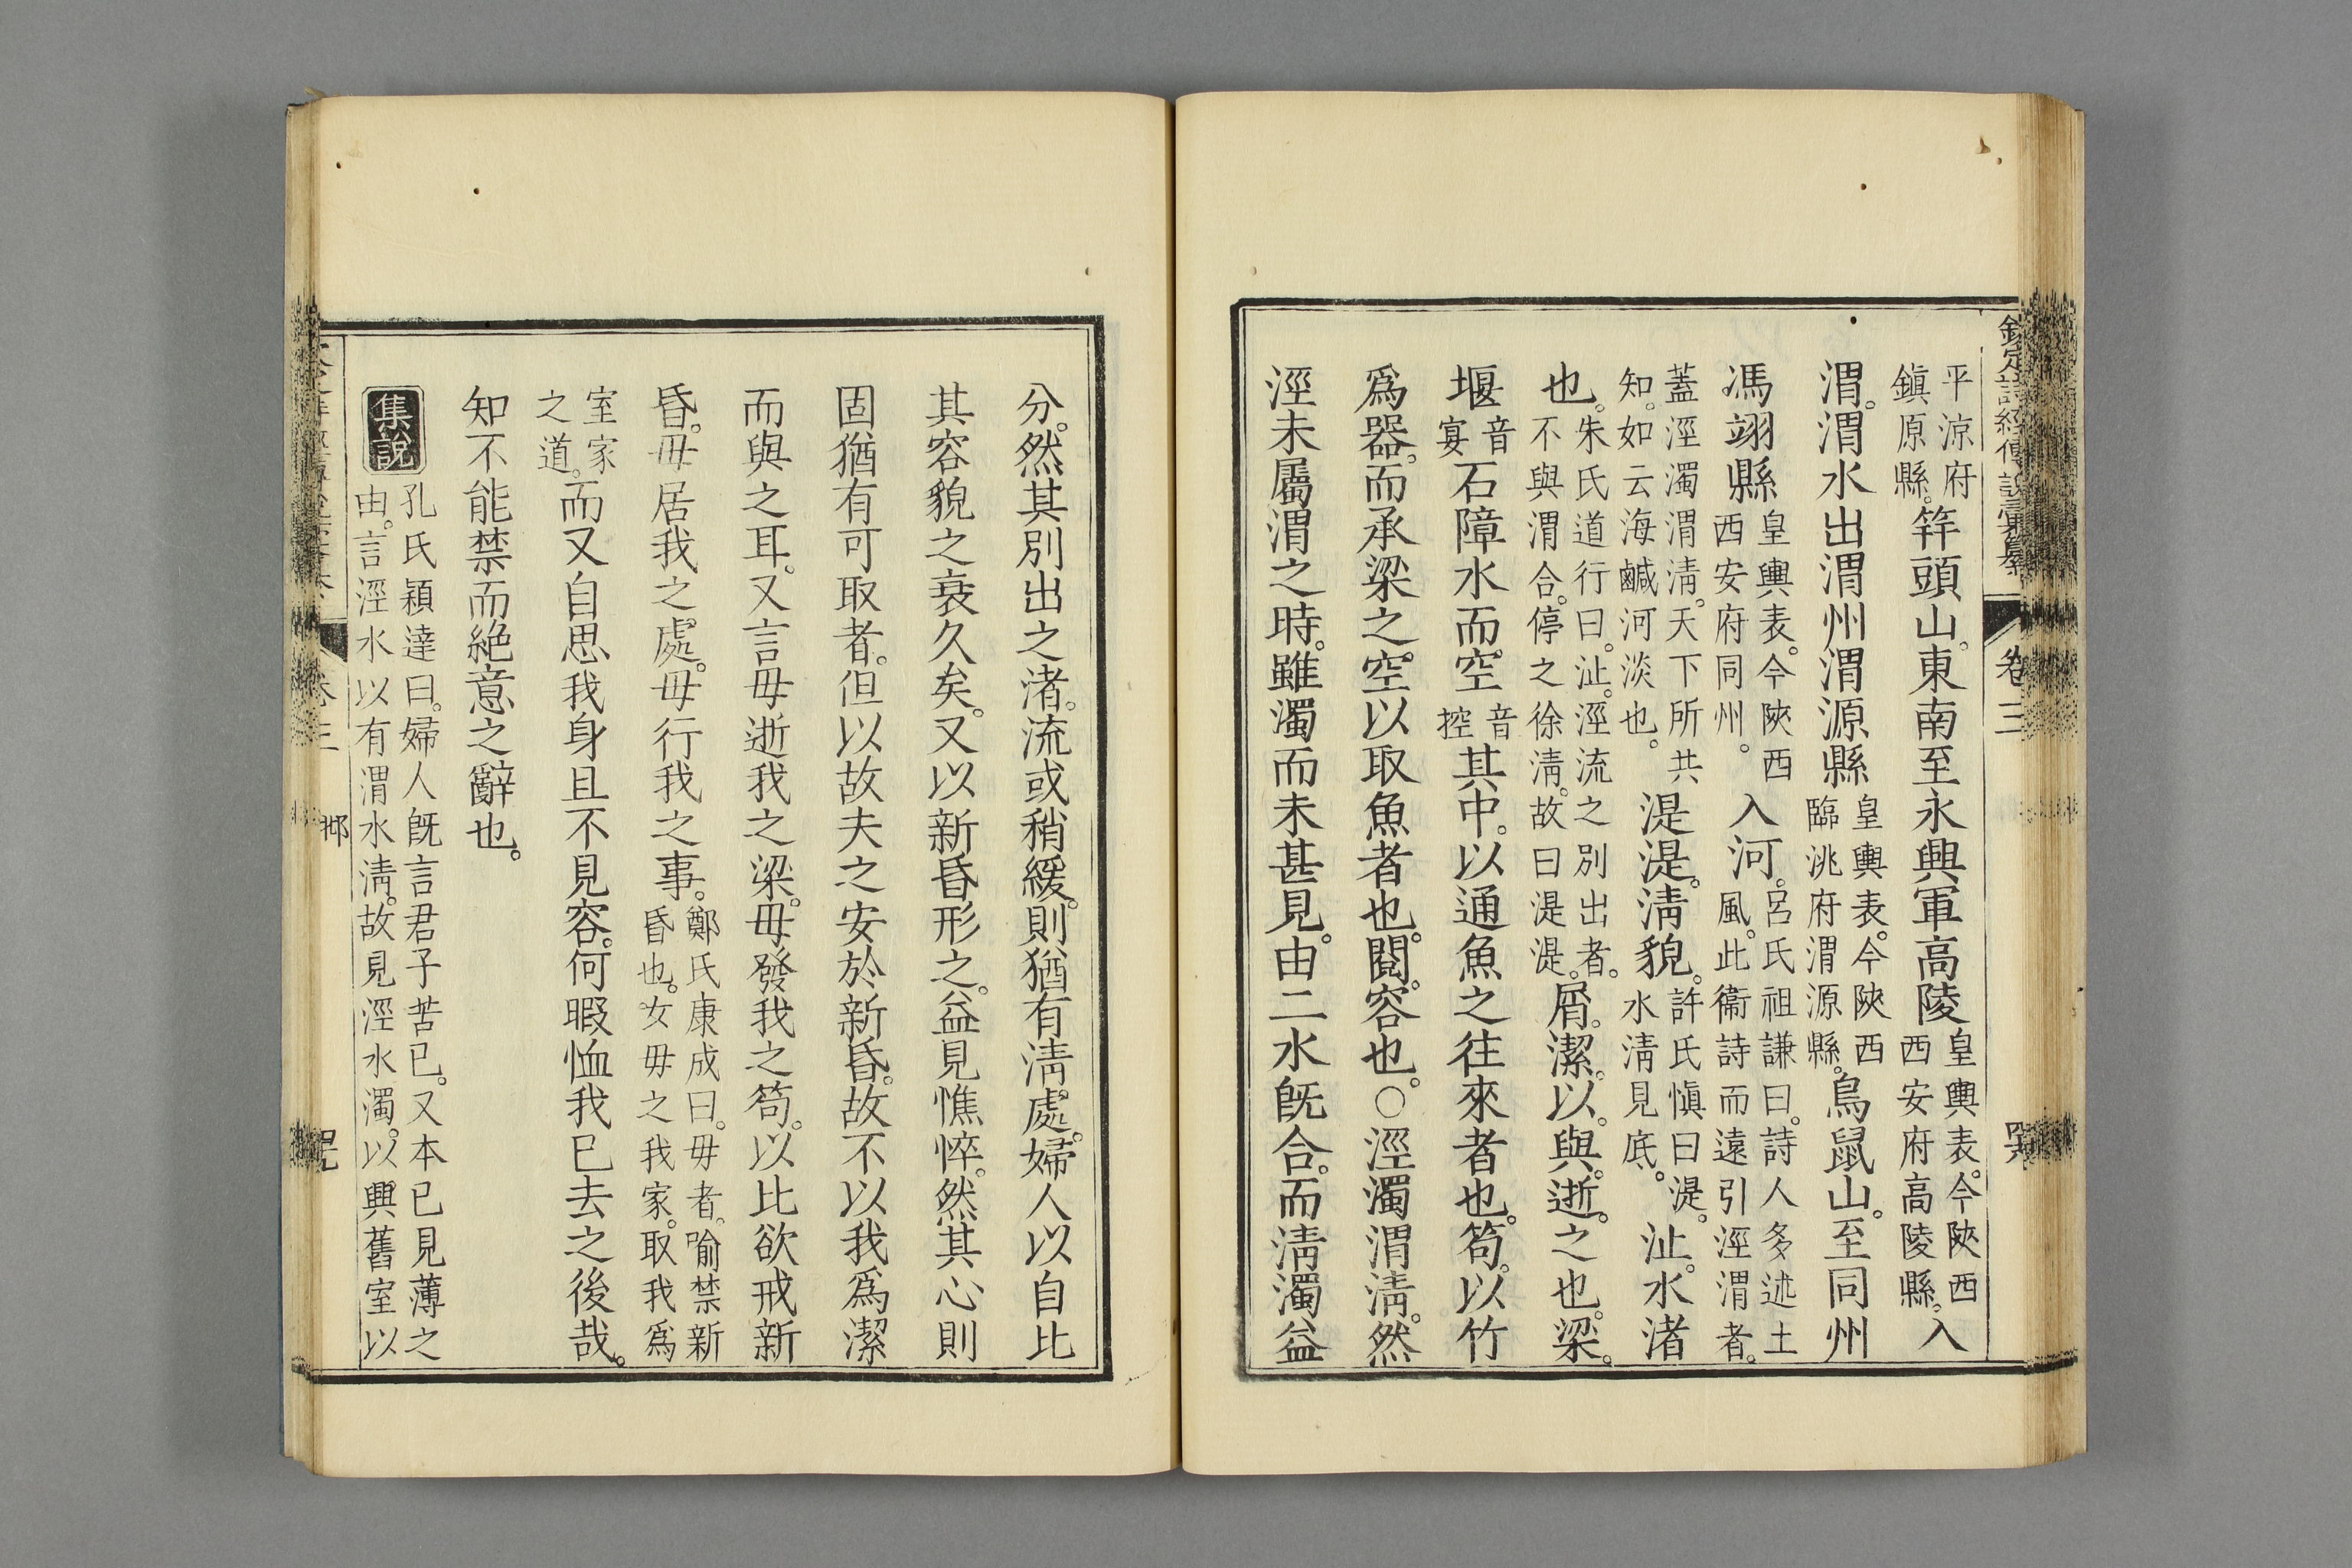 欽定詩經傳說彙纂 卷三
平涼府鎮原縣。筓頭山。東南至永興軍高陵皇輿表。今陝西西安府高陵縣。入
渭。渭水出渭州渭源縣皇輿表。今陝西臨洮府渭源縣。鳥鼠山。至同州
馮翊縣皇輿表。今陝西西安府同州。入河。呂氏祖謙曰。詩人多述土風。此衞詩而遠引涇渭者。
蓋涇濁渭淸。天下所共知。如云海鹹河淡也。湜湜。淸貌。許氏愼曰。湜。水淸見底。沚。水渚
也。朱氏道行曰。沚。涇流之別出者。不與渭合。停之徐淸。故曰湜湜。屑。潔。以。與。逝。之也。梁。
堰音宴石障水而空音控其中。以通魚之往來者也。笱。以竹
爲器。而承梁之空。以取魚者也。閱。容也。○涇濁渭淸。然
涇未屬渭之時。雖濁而未甚見。由二水旣合。而淸濁益
分。然其別出之渚。流或稍緩。則猶有淸處。婦人以自比
其容貌之衰久矣。又以新昏形之。益見憔悴。然其心則
固猶有可取者。但以故夫之安於新昏。故不以我爲潔
而與之耳。又言毋逝我之梁。毋發我之笱。以比欲戒新
昏。毋居我之處。毋行我之事。鄭氏康成曰。毋者。喻禁新昏也。女毋之我家。取我爲
室家之道。而又自思我身且不見容。何暇恤我已去之後哉。
知不能禁而絕意之辭也。
集說 孔氏穎達曰。婦人旣言君子苦已。又本已見薄之由。言涇水以有渭水淸。故見涇水濁。以興舊室以
卷三 邶